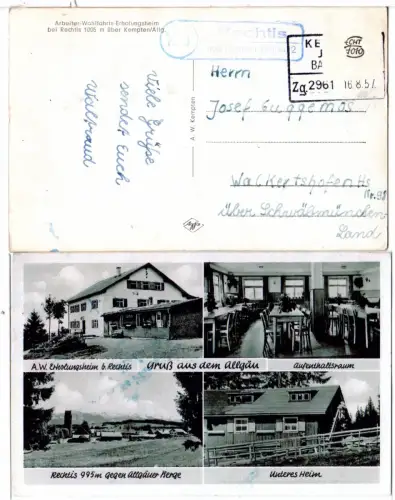 Arbeiter-Wallfahrts-Erholungsheim
bei Rechtis 1005 m über Kempten/Allg.
Rechtis
Zg. 2961 16.8.57.
Viele Grüße
sendet Euch
Waltraud
A. W. Kempten
Herrn
Josef Guggemos
Walkertshofen Hs
Nr. 98
über Schwabmünchen
Land
Agfa
A.W. Erholungsheim b. Rechtis
Gruß aus dem Allgäu
Aufenthaltsraum
Rechtis 995m gegen Allgäuer Berge
Unteres Heim